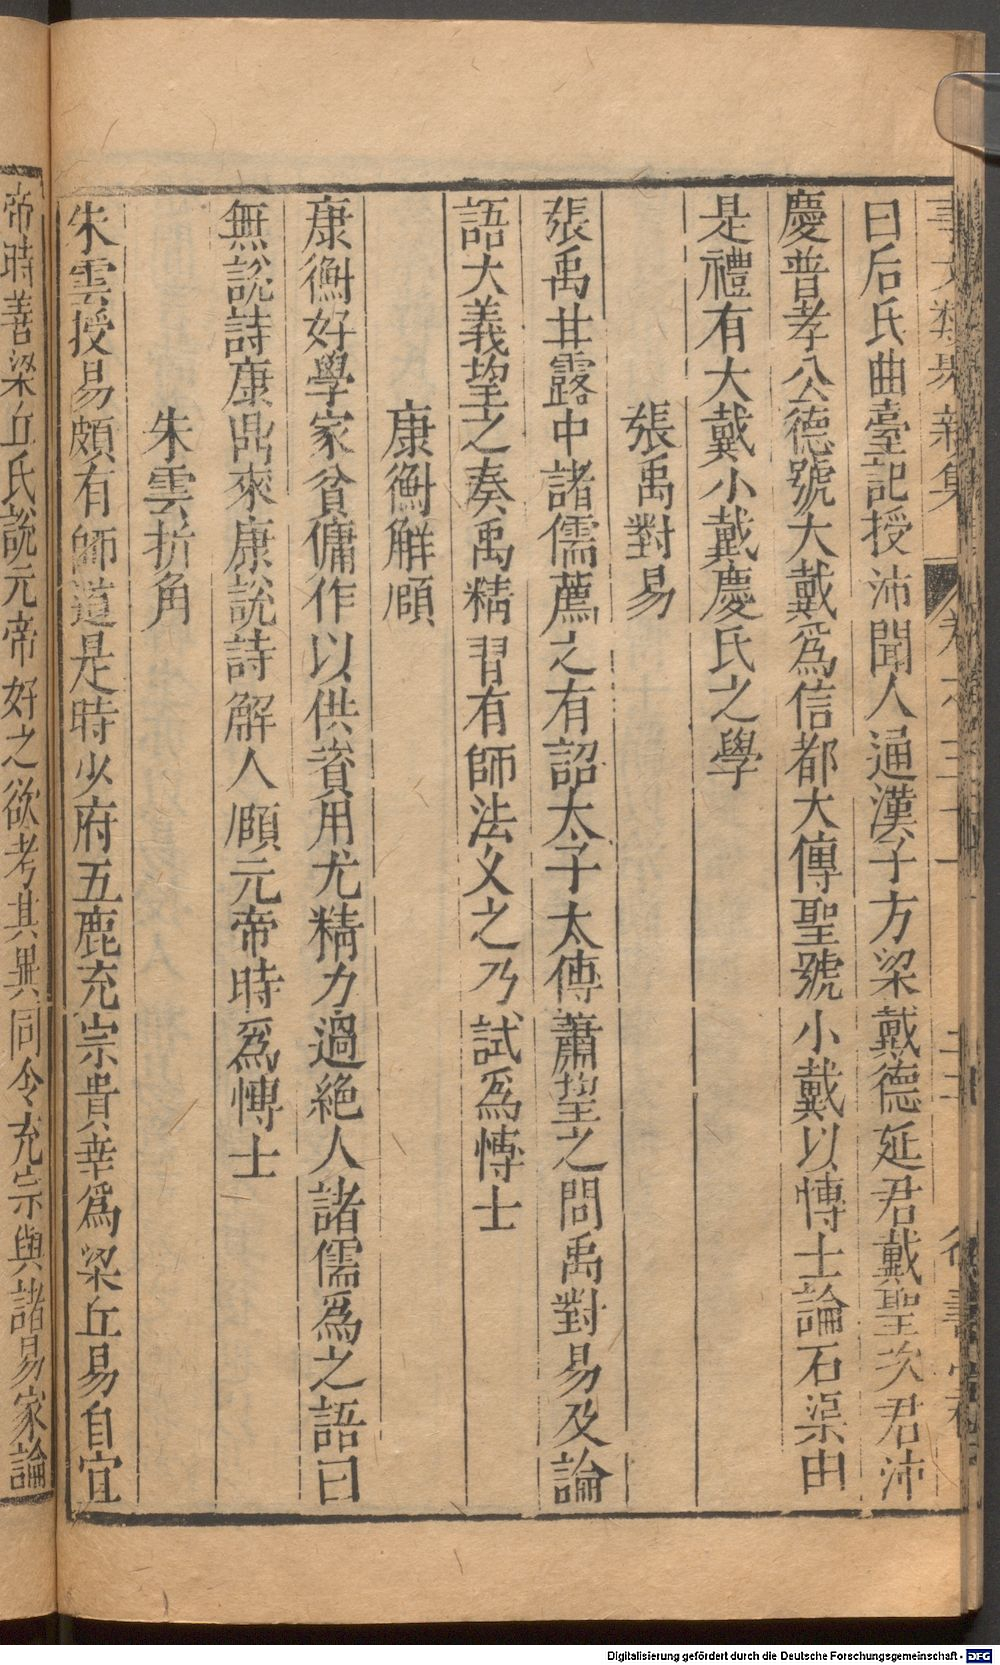 事文類聚新集 卷之三十一
曰后氏曲臺記授沛聞人通漢子方梁戴德延君戴聖次君沛
慶普孝公德號大戴爲信都大傳聖號小戴以愽士論石渠由
是禮有大戴小戴慶氏之學
張禹對易
張禹甘露中諸儒薦之有詔太子太傅蕭望之問禹對易及論
語大義望之奏禹精習有師法义之乃試爲愽士
康衡解頤
康衡好學家貧傭作以供資用尤精力過絶人諸儒爲之語曰
無說詩康鼎來康說詩解人頤元帝時爲愽士
朱雲折角
朱雲授易頗有師道是時少府五鹿充宗貴幸爲梁丘易自宣
帝時善梁丘氏說元帝好之欲考其異同令充宗與諸易家論
Digitalisierung gefördert durch die Deutsche Forschungsgemeinschaft - DFG